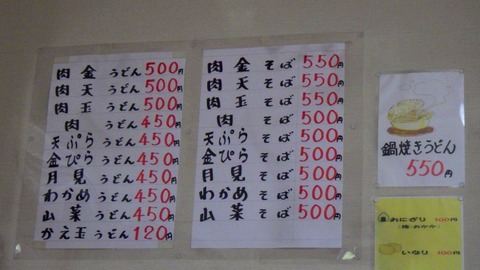 肉金うどん500円
肉天うどん500円
肉玉うどん500円
肉うどん450円
天ぷらうどん450円
金ぴらうどん450円
月見うどん450円
わかめうどん450円
山菜うどん450円
かえ玉うどん120円
肉金そば550円
肉天そば550円
肉玉そば550円
肉そば500円
天ぷらそば500円
金ぴらそば500円
月見そば500円
わかめそば500円
山菜そば500円
鍋焼きうどん
550円
おにぎり 100円
(梅・おかか)
いなり 100円